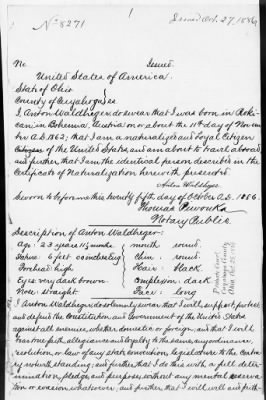 No 8271
Issued Oct. 27, 1886
No Issued
United States of America.
State of Ohio
County of Cuyahoga } ss
I, Anton Waldheger do swear that I was born in Roki-
can in Bohemia, Austria on or about the 11th day of Novem
ber A.D. 1862; that I am a naturalized and loyal Citizen
of the United States, and am about to travel abroad,
and further, that I am the identical person described in the
Certificate of Naturalization herewith presented.
Anton Waldheger
Sworn to before me this twenty fifth day of October A.D. 1886.
Thomas
Notary Public
Description of Anton Waldheger:
Age: 23 years 11½ months mouth round.
Stature: 6 feet chin: round.
Forehead: high Hair: black.
Eyes: very dark brown Complexion: dark
Nose: straight Face: long
I Anton Waldheger do solemnly swear that I will support, protect,
and defend the Constitution, and Government of the United States
against all enemies, whether domestic or foreign; and that I will
bear true faith, allegiance and loyalty to the same, any ordinance,
resolution or law of any state, convention, legislature to the contra
ry notwithstanding; and further, that I do this with a full deter-
mination, pledge and purpose, without any mental reserva
tion or evasion whatsoever; and further, that I will well and faith-